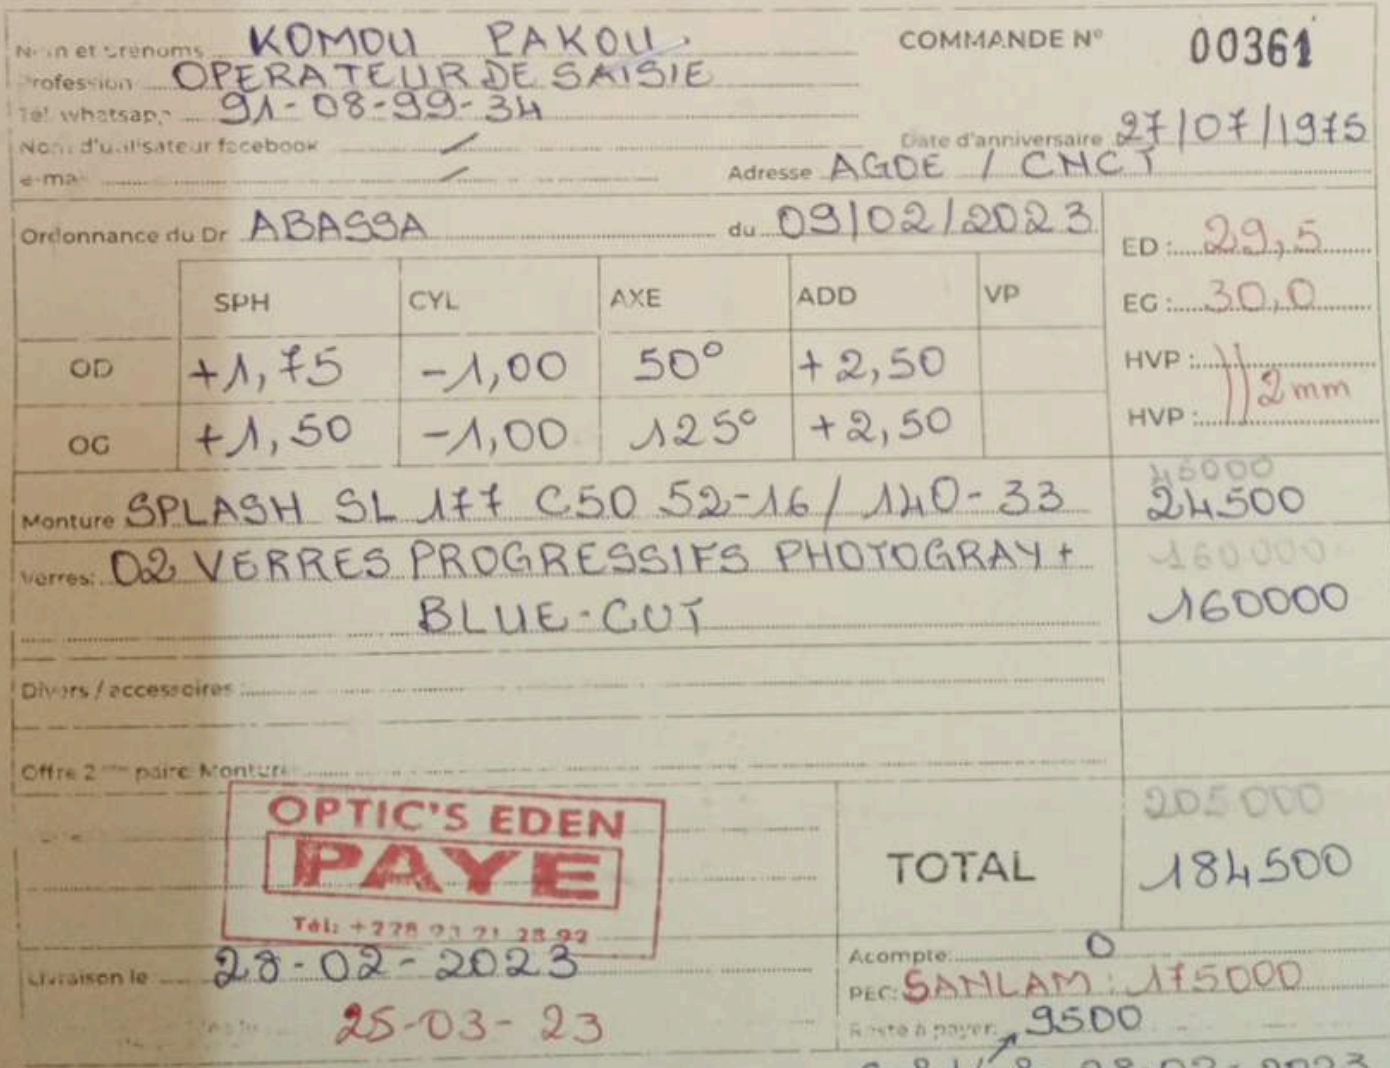 Nom et prénoms KOMOU PAKOU
COMMANDE N° 00361
Profession OPERATEUR DE SAISIE
Tél whatsapp 91-08-99-34
Nom d'utilisateur facebook /
Date d'anniversaire 27/07/1975
e-mail /
Adresse AGOE / CNCT
Ordonnance du Dr ABASSA du 09/02/2023
ED : 29,5
SPH CYL AXE ADD VP
EG : 30,0
OD +1,75 -1,00 50° +2,50
HVP :
2mm
OG +1,50 -1,00 125° +2,50
HVP :
45000
Monture SPLASH SL 177 C50 52-16/140-33 24500
Verres: 02 VERRES PROGRESSIFS PHOTOGRAY +
160000
BLUE-CUT 160000
Divers / accessoires
Offre 2ème paire Monture
205000
OPTIC'S EDEN
PAYE
TOTAL 184500
Livraison le 28-02-2023
Acompte: 0
PEC: SANLAM : 175000
25-03-23
Reste à payer: 9500